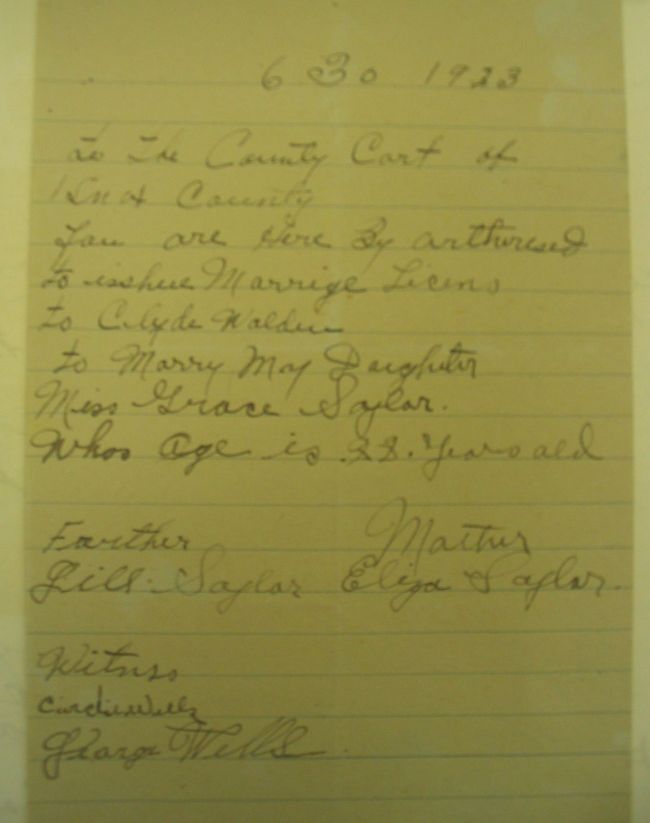 6 30 1923
to the County Cort of
Knox County
you are Here By arthuresed
to isshue Marrige Licens
to Clyde Walden
to Marry My Daighter
Miss Grace Saylor.
Whos Age is 22. Years old
Farther Mother
Gill Saylor Eliza Saylor.
Witnss
Wells
George Wells